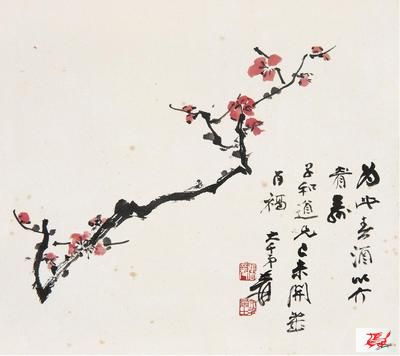 為此春酒以介
眉壽
子和道兄己未開歲
百福
大千弟爰